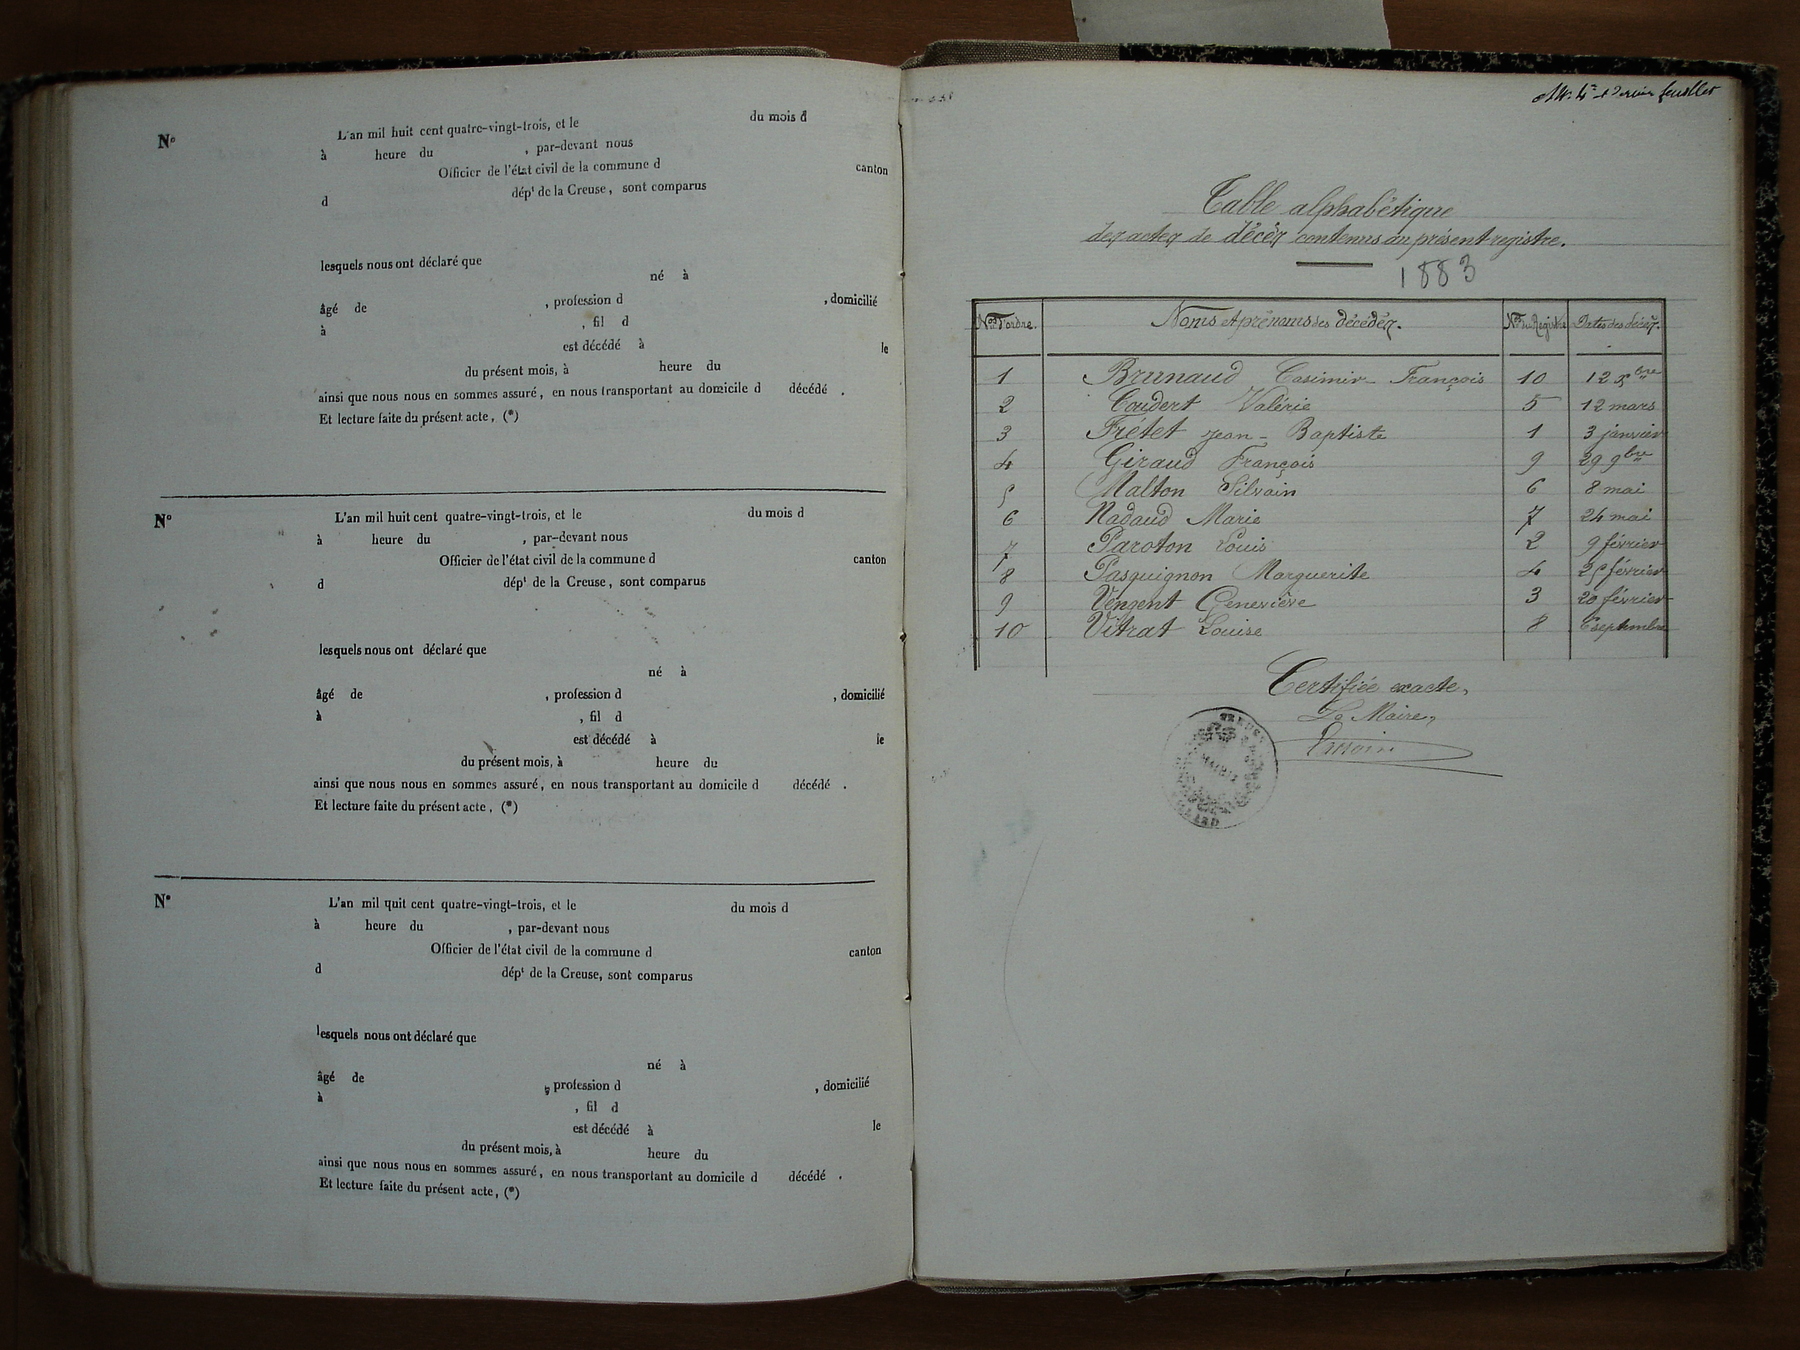 N° L'an mil huit cent quatre-vingt-trois, et le du mois d
à heure du , par-devant nous
Officier de l'état civil de la commune d canton
d dépt de la Creuse, sont comparus
lesquels nous ont déclaré que
né à
âgé de , profession d , domicilié
à , fil d
est décédé à le
du présent mois, à heure du
ainsi que nous nous en sommes assuré, en nous transportant au domicile d décédé .
Et lecture faite du présent acte, (*)
N° L'an mil huit cent quatre-vingt-trois, et le du mois d
à heure du , par-devant nous
Officier de l'état civil de la commune d canton
d dépt de la Creuse, sont comparus
lesquels nous ont déclaré que
né à
âgé de , profession d , domicilié
à , fil d
est décédé à le
du présent mois, à heure du
ainsi que nous nous en sommes assuré, en nous transportant au domicile d décédé .
Et lecture faite du présent acte, (*)
N° L'an mil quit cent quatre-vingt-trois, et le du mois d
à heure du , par-devant nous
Officier de l'état civil de la commune d canton
d dépt de la Creuse, sont comparus
lesquels nous ont déclaré que
né à
âgé de , profession d , domicilié
à , fil d
est décédé à le
du présent mois, à heure du
ainsi que nous nous en sommes assuré, en nous transportant au domicile d décédé .
Et lecture faite du présent acte, (*)
et dernier feuillet
Table alphabétique
des actes de décès contenus au présent registre.
1883
Nos d'ordre. Noms et prénoms des décédés. Nos du Registre Dates des décès.
1 Brunaud Casimir François 10 12 Xbre
2 Coudert Valérie 5 12 mars
3 Frétet Jean-Baptiste 1 3 janvier
4 Giraud François 9 29 9bre
5 Malton Silvain 6 8 mai
6 Nadaud Marie 7 24 mai
7 Paroton Louis 2 9 février
8 Pasquignon Marguerite 4 25 février
9 Vengent Geneviève 3 20 février
10 Vitrat Louise 8 6 septembre
Certifiée exacte,
Le Maire,
MAIRIE